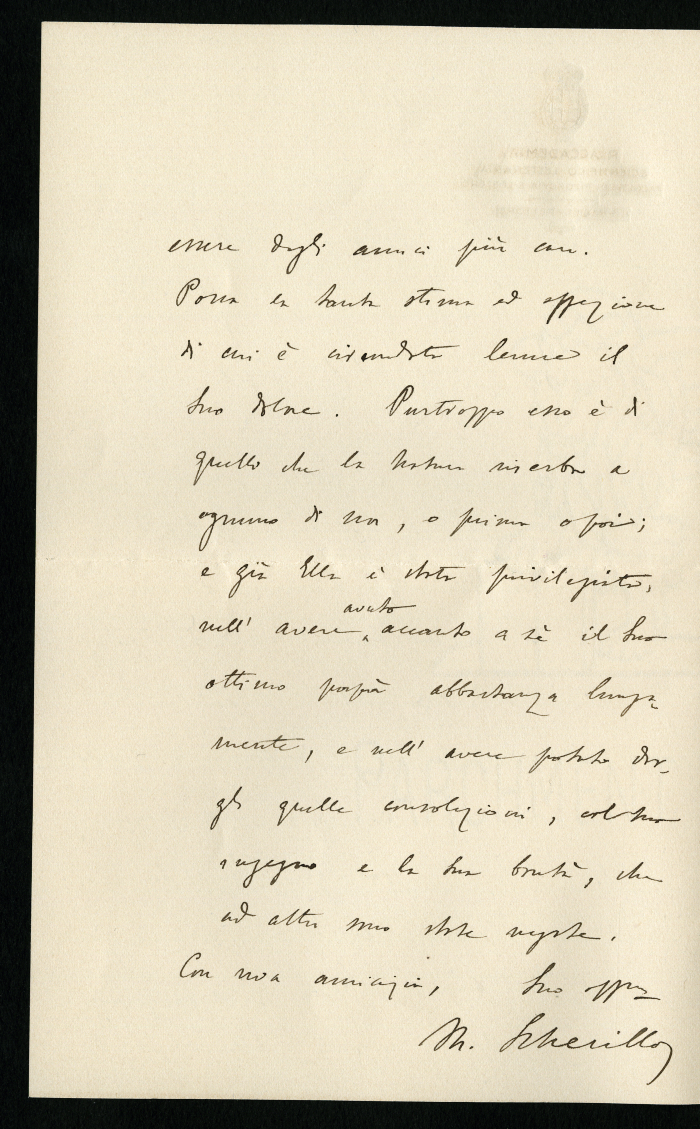 essere degli amici più cari.
Possa la tanta stima ed affezione
di cui è circondata lenire il
Suo dolore. Purtroppo esso è di
quello che la natura riserba a
ognuno di noi, o prima o poi;
e già Ella è stata privilegiata,
nell' avere avuto accanto a sè il Suo
ottimo papà abbastanza lunga-
mente, e nell' avere potuto dar-
gli quelle consolazioni, col Suo
ingegno e la Sua bontà, che
ad altri sono state negate.
Con viva amicizia, Suo affez
M. Scherillo